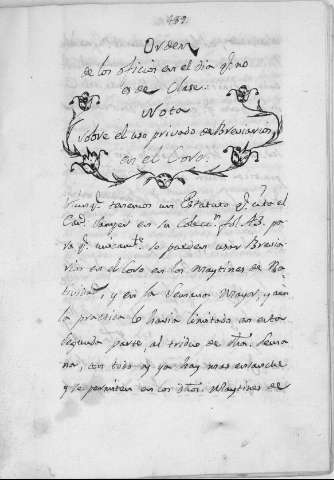 489
Orden
de los oficios en el dia q.e no
es de Clase.
Nota
sobre el uso privado de Breviarios,
en el Coro.
Aunq.e tenemos un Estatuto q.e cita el
en la Colecc.n fol. 43. pa
ra q.e unicam.te se puedan usar Brevia
rios en el Coro en los Maytines de Na
tividad, y en la Semana Mayor, y aun
la practica lo havia limitado en esta
segunda parte, al triduo de dha. Sema
na; con todo ya hay mas ensanche
y se permiten en los dhos. Maytines de